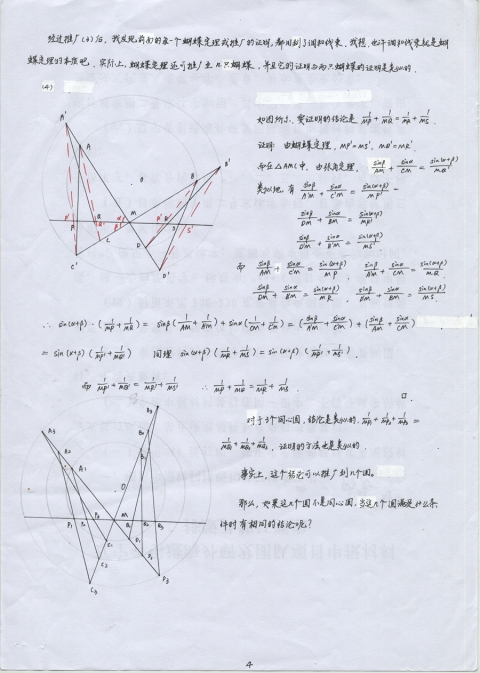 经过推广(3)后，我发现前面的每一个蝴蝶定理或推广的证明，都用到了调和线束。我想，也许调和线束就是蝴
蝶定理的本质吧。实际上，蝴蝶定理还可推广至n只蝴蝶，并且它的证明与两只蝴蝶的证明是类似的.
(4)
如图所示，要证明的结论是 1/MP + 1/MQ = 1/MR + 1/MS.
证明: 由蝴蝶定理，MP'=MS'，MQ'=MR'
而在△AMC中，由张角定理，sinβ/AM + sinα/C'M = sin(α+β)/MQ'
类似地，有 sinβ/A'M + sinα/C'M = sin(α+β)/MP'
sinβ/DM + sinα/BM = sin(α+β)/MR'
sinβ/D'M + sinα/B'M = sin(α+β)/MS'
而 sinβ/AM + sinα/C'M = sin(α+β)/MP , sinβ/A'M + sinα/CM = sin(α+β)/MQ
sinβ/DM + sinα/B'M = sin(α+β)/MR , sinβ/D'M + sinα/BM = sin(α+β)/MS
∴ sin(α+β)·(1/MP + 1/MQ) = sinβ(1/AM + 1/A'M) + sinα(1/CM + 1/C'M) = (sinβ/A'M + sinα/C'M) + (sinβ/AM + sinα/CM)
= sin(α+β)(1/MP' + 1/MQ') 同理 sin(α+β)(1/MR + 1/MS) = sin(α+β)(1/MR' + 1/MS').
而 1/MP' + 1/MQ' = 1/MR' + 1/MS' ∴ 1/MP + 1/MQ = 1/MR + 1/MS.
□.
对于3个同心圆，结论是类似的. 1/MP₁ + 1/MP₂ + 1/MP₃ =
1/MQ₁ + 1/MQ₂ + 1/MQ₃ , 证明的方法也是类似的.
事实上，这个结论可以推广到n个圆。
那么，如果这n个圆不是同心圆，当这n个圆满足什么条
件时有相同的结论呢？
4